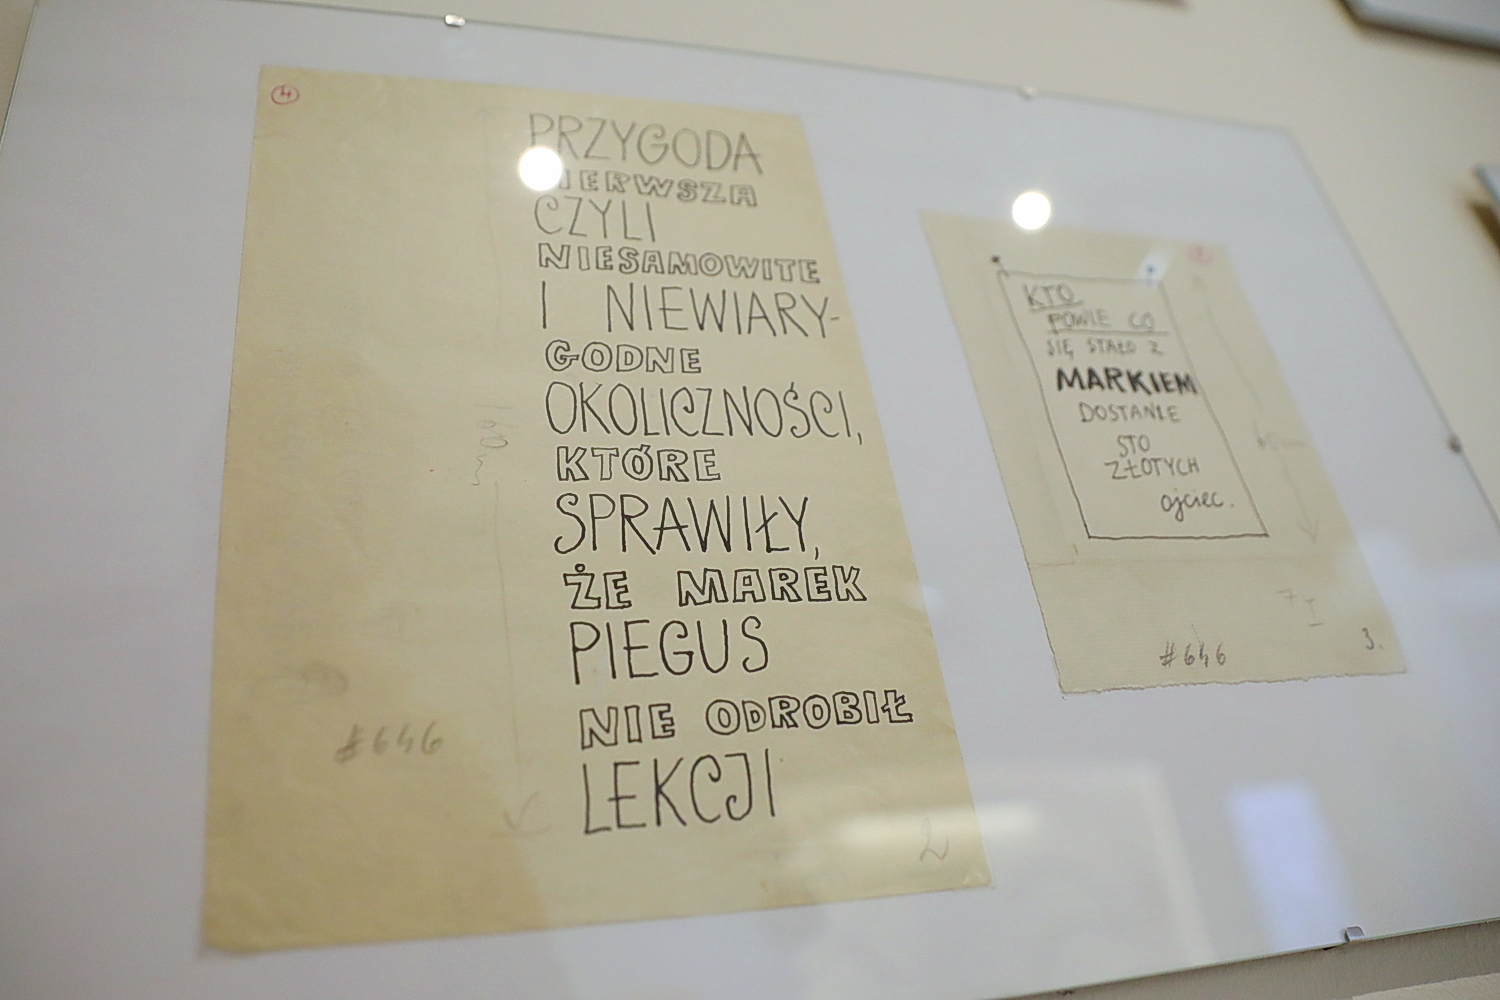 4
PRZYGODA
PIERWSZA
CZYLI
NIESAMOWITE
I NIEWIARY-
GODNE
OKOLICZNOŚCI,
KTÓRE
SPRAWIŁY,
ŻE MAREK
PIEGUS
NIE ODROBIŁ
LEKCJI
#646
2
KTO
POWIE CO
SIĘ STAŁO Z
MARKIEM
DOSTANIE
STO
ZŁOTYCH
ojciec.
#646
3.